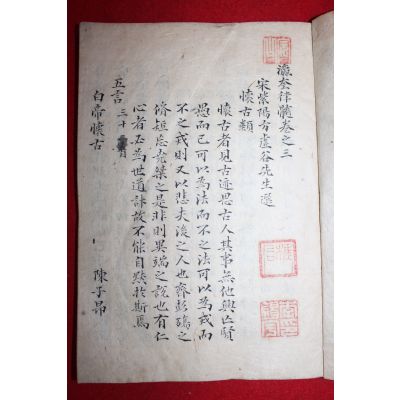 瀛奎律髓卷之三
宋紫陽方虛谷先生選
懷古類
懷古者見古迹思古人其事無他興亡賢
愚而已可以為法而不之法可以為戒而
不之戒則又以悲夫後之人也齊彭殤之
脩短忘堯桀之是非則異端之說也有仁
心者必為世道計故不能自默於斯焉
五言 三十
白帝懷古 陳子昂